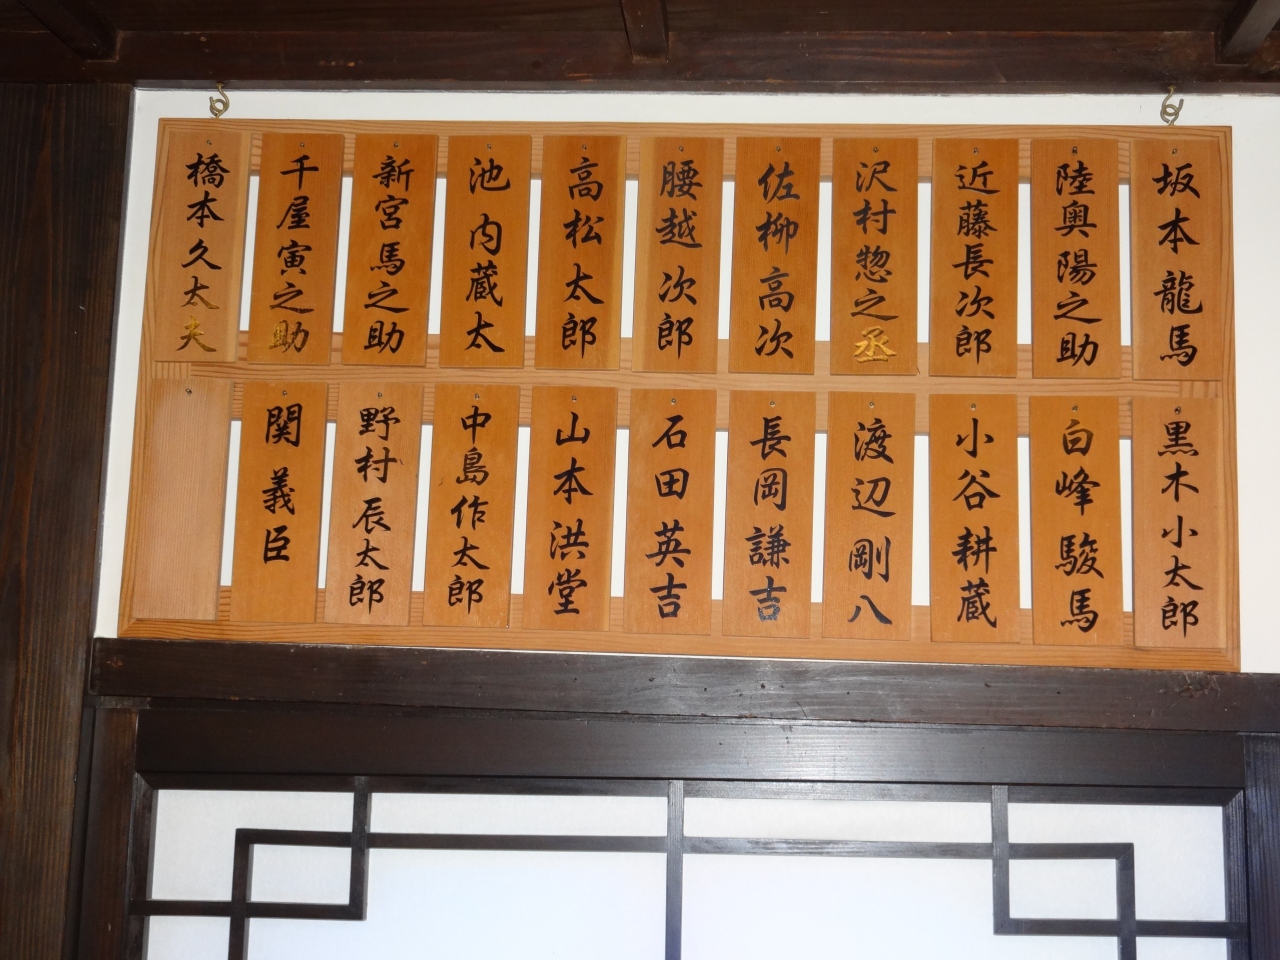 坂本龍馬
陸奥陽之助
近藤長次郎
沢村惣之丞
佐柳高次
腰越次郎
高松太郎
池内蔵太
新宮馬之助
千屋寅之助
橋本久太夫
黒木小太郎
白峰駿馬
小谷耕蔵
渡辺剛八
長岡謙吉
石田英吉
山本洪堂
中島作太郎
野村辰太郎
関義臣